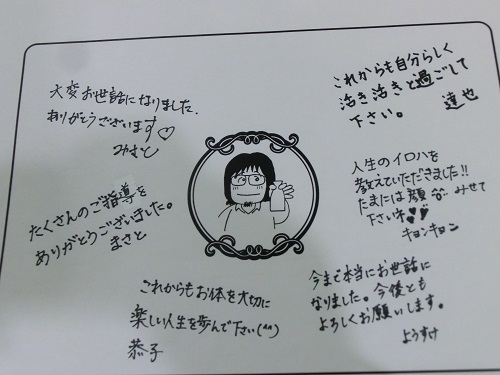 大変お世話になりました.
ありがとうございます♡
みさと
これからも自分らしく
活き活きと過ごして
下さい。
達也
たくさんのご指導を
ありがとうございました。
まさと
人生のイロハを
教えていただきました!!
たまには顔 みせて
下さいネ
キョンキョン
これからもお体を大切に
楽しい人生を歩んで下さい(^^)
恭子
今まで本当にお世話に
なりました。今後とも
よろしくお願いします。
ようすけ